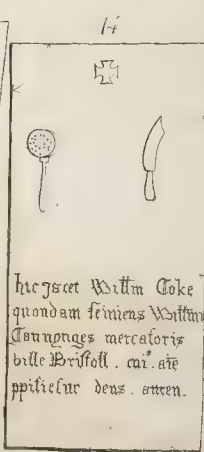 14
hic Jacet Willm Coke
quondam serviens Willmi
Cannynges mercatoris
ville Bristoll . cui' aie
ppitietur deus . amen.